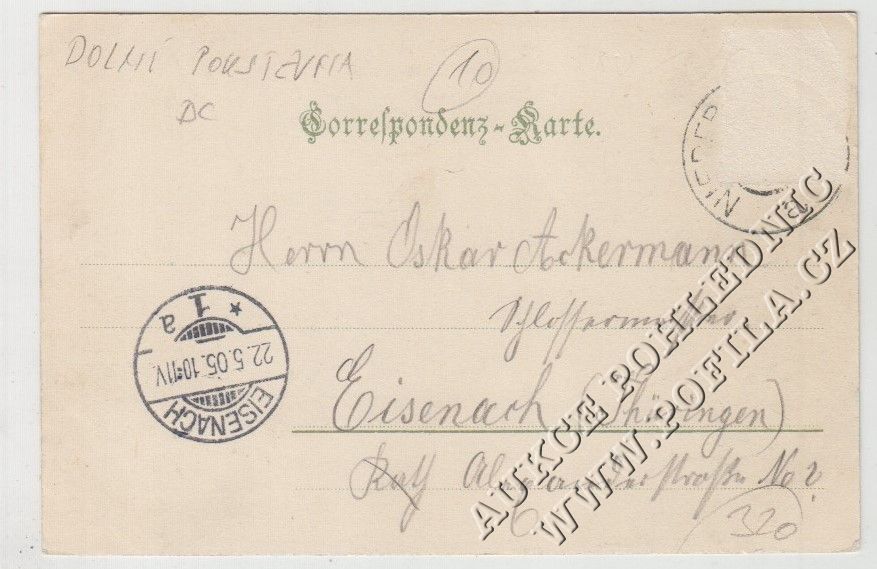 DOLNÍ POUSTEVNA
10
DC
Correspondenz-Karte.
NIEDER
Herrn Oskar Ackermann
Schlossermeister
Eisenach (Thüringen)
Karl Alexanderstraße No 2
320
EISENACH
22.5.05.10-11V.
* 1 a
AUKCE POHLEDNIC
WWW.POFILA.CZ